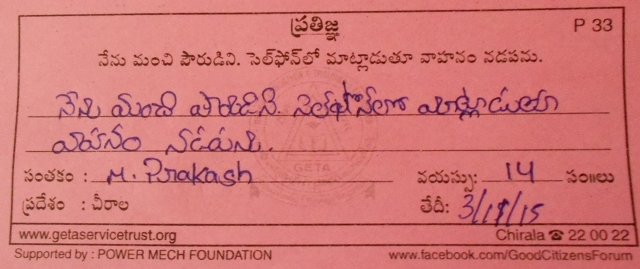 ప్రతిజ్ఞ P 33
నేను మంచి పౌరుడిని. సెల్‌ఫోన్‌లో మాట్లాడుతూ వాహనం నడపను.
నేను మంచి పౌరుడిని. సెల్‌ఫోన్‌లో మాట్లాడుతూ
వాహనం నడపను.
సంతకం : M. Prakash వయస్సు: 14 సం॥లు
ప్రదేశం : చీరాల తేదీ:
www.getaservicetrust.org Chirala ☎ 22 00 22
Supported by : POWER MECH FOUNDATION www.facebook.com/GoodCitizensForum
GETA